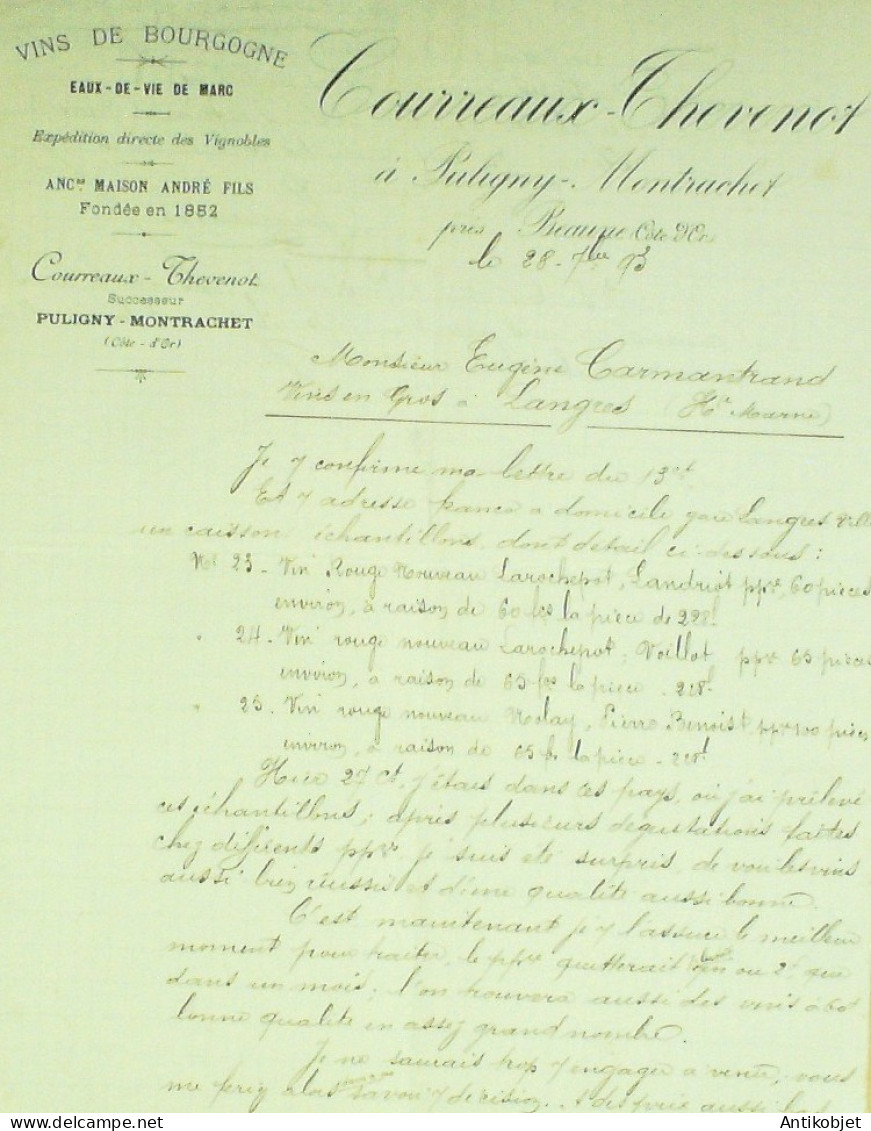 VINS DE BOURGOGNE
EAUX-DE-VIE DE MARC
Expédition directe des Vignobles
ANCNE MAISON ANDRÉ FILS
Fondée en 1852
Courreaux-Thevenot
Successeur
PULIGNY-MONTRACHET
(Côte-d'Or)
Courreaux-Thevenot
à Puligny-Montrachet
près Beaune (Côte d'Or)
le 28 7bre 93
Monsieur Eugène Carmantrand
Vins en Gros à Langres (Hte Marne)
Je v confirme ma lettre du 13 ct
Et v adresse franco a domicile gare Langres Ville
un caisson échantillons, dont detail ci-dessous :
No 23 - Vin Rouge Nouveau Larochepot, Landriot pprre, 60 pièces
environ, a raison de 60 frs la pièce de 228l
" 24 - Vin rouge nouveau Larochepot, Voillot pprre 65 pièces
environ, a raison de 65 frs la pièce - 228l
" 25. Vin rouge nouveau Nolay, Pierre Benoist, pprre 100 pièces
environ, a raison de 65 frs la pièce - 228l
Hier 27 ct, j'étais dans ces pays, où j'ai prélevé
ces échantillons ; après plusieurs dégustations faites
chez différents pprres je suis été surpris de voir les vins
aussi bien réussis et d'une qualité aussi bonne.
C'est maintenant je v l'assure le meilleur
moment pour traiter, le pprre quitterait bien ou 2f que
dans un mois ; l'on trouvera aussi des vins à 60f
bonne qualité en assez grand nombre.
Je ne saurais trop v engager a venir, vous
me ferez alors savoir v décision